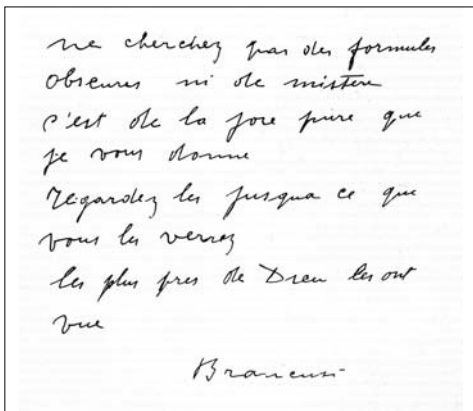 ne cherchez pas des formules
obscures ni de mistère
c'est de la joie pure que
je vous donne
regardez les jusqua ce que
vous les verrez
les plus pres de Dieu les ont
vue
Brancusi